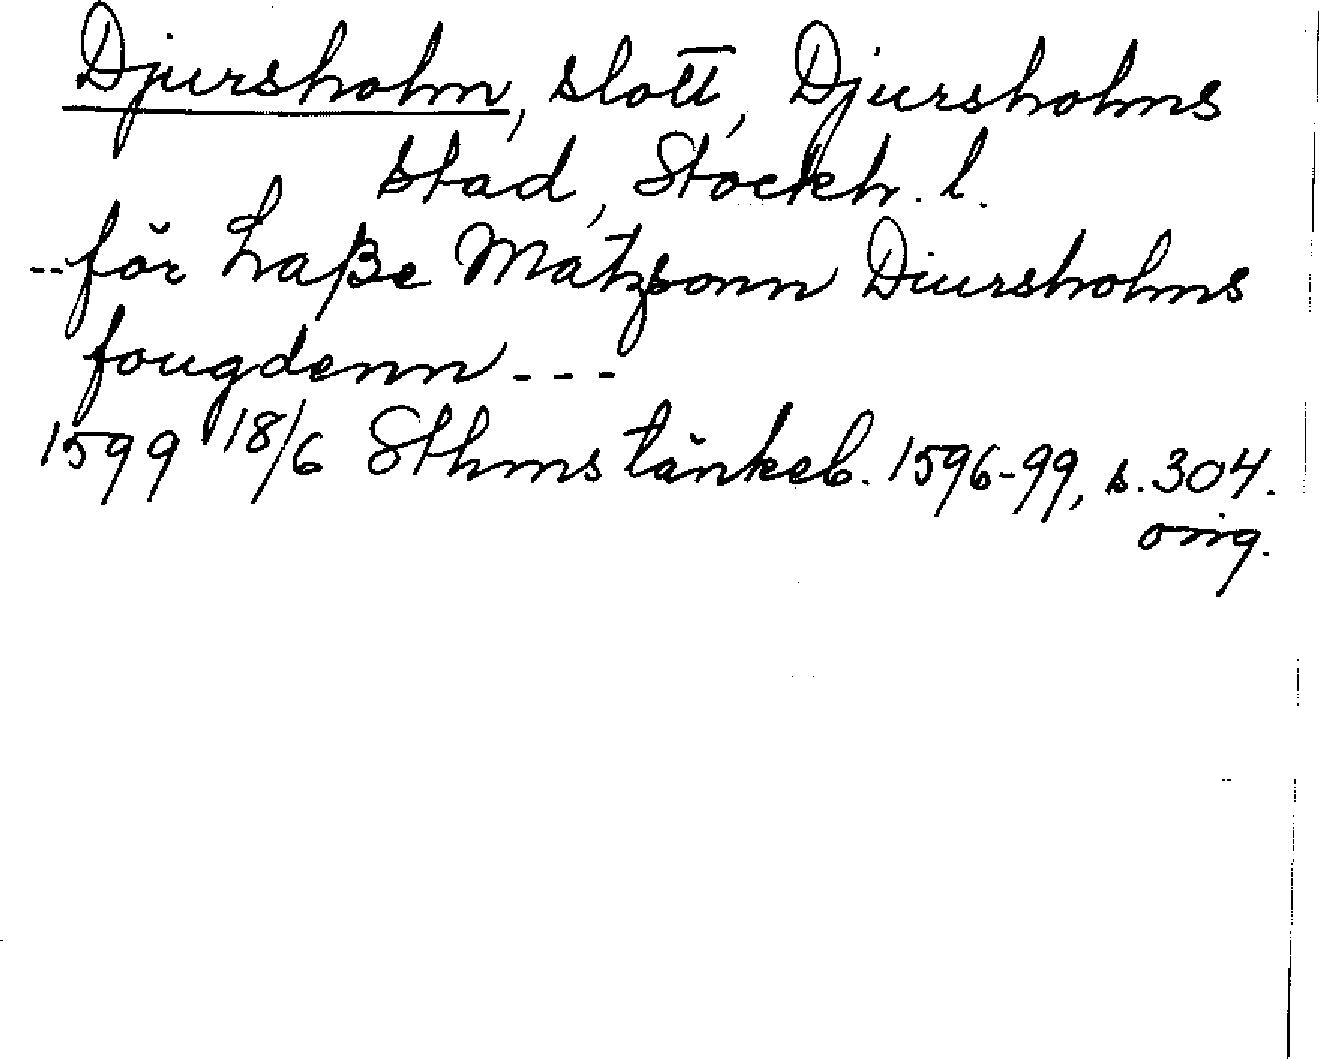 Djursholm, slott, Djursholms
stad, Stockh. l.
--för Laße Matzsonn Diursholms
fougdenn---
1599 18/6 Sthms tänkeb. 1596-99, s. 304.
orig.